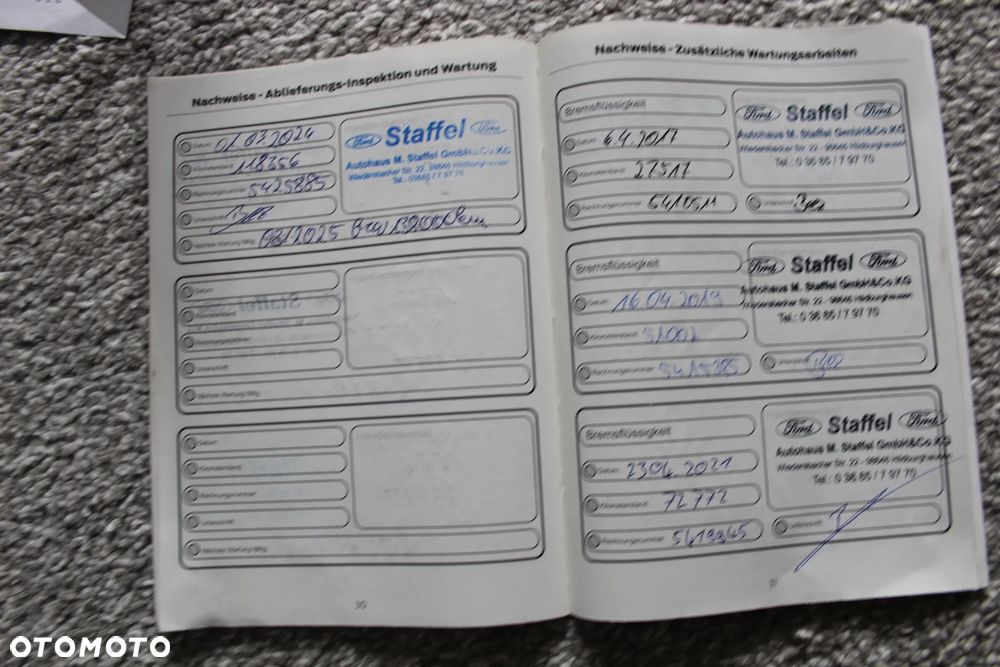 Nachweise - Ablieferungs-Inspektion und Wartung
Datum 01.03.2024
Kilometerstand 118356
Rechnungsnummer 5425885
Unterschrift
Nächste Wartung fällig 03/2025 bzw.
Ford Staffel Ford
Autohaus M. Staffel GmbH&Co.KG
Wiedersbacher Str. 22, 98646 Hildburghausen
Tel.: 03685 / 7 97 70
Datum
Kilometerstand
Rechnungsnummer
Unterschrift
Nächste Wartung fällig
Datum
Kilometerstand
Rechnungsnummer
Unterschrift
Nächste Wartung fällig
30
Nachweise - Zusätzliche Wartungsarbeiten
Bremsflüssigkeit
Datum 6.4.2017
Kilometerstand 27517
Rechnungsnummer 5410511
Ford Staffel Ford
Autohaus M. Staffel GmbH&Co.KG
Wiedersbacher Str. 22 - 98646 Hildburghausen
Tel.: 0 36 85 / 7 97 70
Unterschrift
Bremsflüssigkeit
Datum 16.04.2019
Kilometerstand 51001
Rechnungsnummer 5415385
Ford Staffel Ford
Autohaus M. Staffel GmbH&Co.KG
Wiedersbacher Str. 22 - 98646 Hildburghausen
Tel.: 0 36 85 / 7 97 70
Unterschrift
Bremsflüssigkeit
Datum 23.04.2021
Kilometerstand 72772
Rechnungsnummer
Ford Staffel Ford
Autohaus M. Staffel GmbH&Co.KG
Wiedersbacher Str. 22 - 98646 Hildburghausen
Tel.: 0 36 85 / 7 97 70
Unterschrift
OTOMOTO